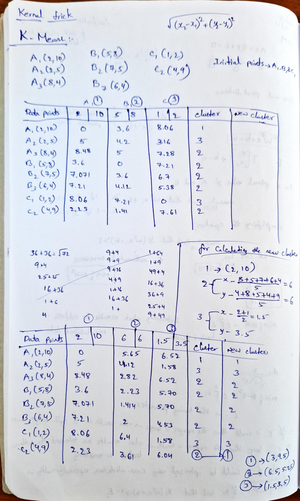 Kernel trick
√(x₂-x₁)²+(y₂-y₁)²
K-Means:-
A₁(2,10) B₁(5,8) C₁(1,2)
A₂(2,5) B₂(7,5) C₂(4,9) Initial points → A₁,B₁,C₁
A₃(8,4) B₃(6,4)
A ① B ② C ③
Data points 2 10 5 8 1 2 cluster New cluster
A₁(2,10) 0 3.6 8.06 1
A₂(2,5) 5 4.2 3.16 3
A₃(8,4) 8.48 5 7.28 2
B₁(5,8) 3.6 0 7.21 2
B₂(7,5) 7.071 3.6 6.7 2
B₃(6,4) 7.21 4.12 5.38 2
C₁(1,2) 8.06 7.21 0 3
C₂(4,9) 2.23 1.41 7.61 2
36+36=√72 9+4 1+64
9+4 9+9
25+25 4+16 49+4
16+36 36+9
1+6 16+36 25+4
4 1+1 9+49
for calculating the new cluster
1 → (2,10)
2 x - 8+5+7+6+4/5 = 6
y - 4+8+5+4+9/5 = 6
3 x - 2+1/2 = 1.5
y - 3.5
① ② ③
Data Points 2 10 6 6 1.5 3.5 cluster New cluster
A₁(2,10) 0 5.65 6.52 1 1
A₂(2,5) 5 4.12 1.58 3 3
A₃(8,4) 8.48 2.82 6.52 2 2
B₁(5,8) 3.6 2.23 5.70 2 2
B₂(7,5) 7.071 1.414 5.70 2 2
B₃(6,4) 7.21 2 4.53 2 2
C₁(1,2) 8.06 6.4 1.58 3 3
C₂(4,9) 2.23 3.61 6.04 ② → ①
① → (3,9.5)
② → (6.5,5.25)
③ → (1.5,3.5)